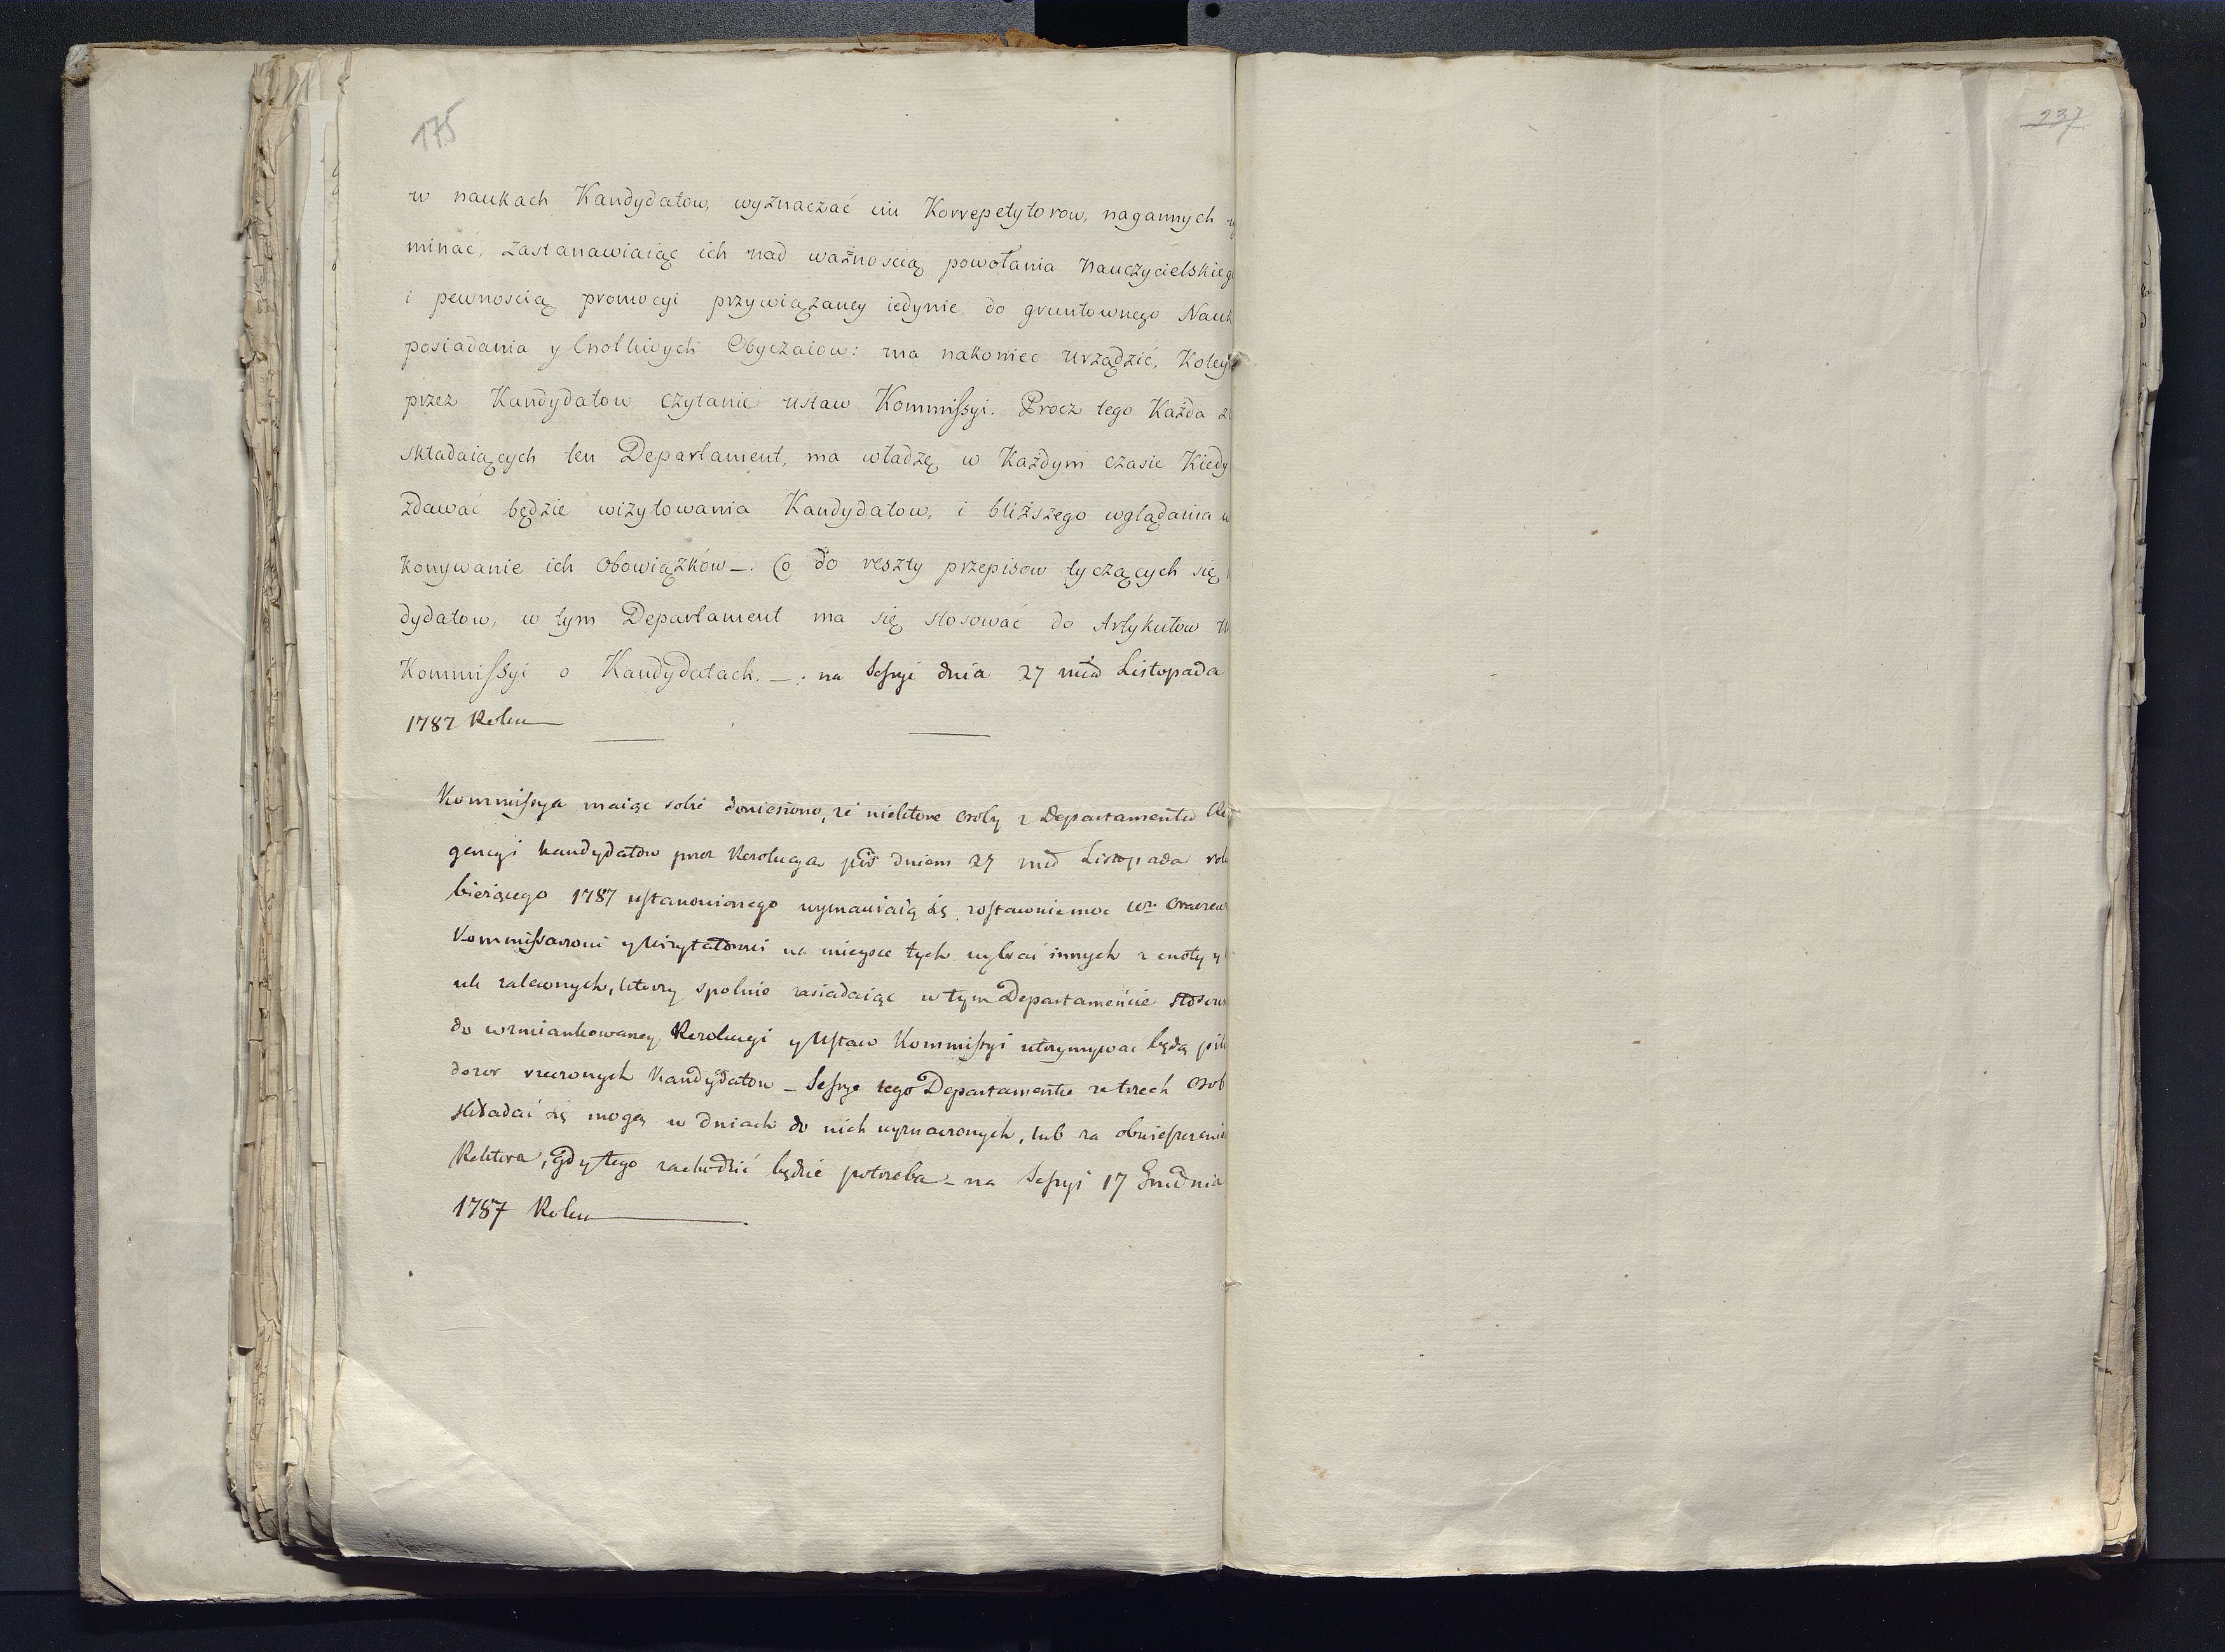 175
237
w naukach Kandydatow, wyznaczać im Korrepetytorow, nagannych
minać, zastanawiaiąc ich nad ważnoscią powołania Nauczycielskieg
i pewnoscią promocyi przywiązaney iedynie do gruntownego Nauk
posiadania y Cnotliwych Obyczaiow: ma nakoniec urządzić, Koley
przez Kandydatow czytanie ustaw Kommissyi. Procz tego Każda z
składaiących ten Departament, ma władzę w Każdym czasie Kiedy
zdawać będzie wizytowania Kandydatow, i bliższego wglądania w
konywanie ich Obowiązków_. Co do reszty przepisow tyczących się
dydatow, w tym Departament ma się stosować do Artykułow
Kommissyi o Kandydatach. _. na Sessyi dnia 27 mca Listopada
1787 Roku
Kommissya maiąc sobie doniesiono, że niektore osoby z Departamentu
gencyi kandydatow przez Rezolucya pod dniem 27 Listopada rok
bieżącego 1787 ustanowionego wymawiaią się, zostawuie moc
Kommissarowi y Wizytatorowi na mieysce tych wybrać innych z cnoty y
uk zaleconych, ktorzy spolnie zasiadaiąc w tym Departamencie stosow
do wzmiankowaney Rezolucyi y Ustaw Kommissyi utrzymywac będą pil
dozor rzeczonych Kandydatow _ Sessye tego Departamentu ze trzech osob
składać się mogą w dniach do nich wyznaczonych, lub za obwieszczeni
Rektora, gdy tego zachodzić będzie potrzeba _ na Sessyi 17 Grudnia
1787 Roku